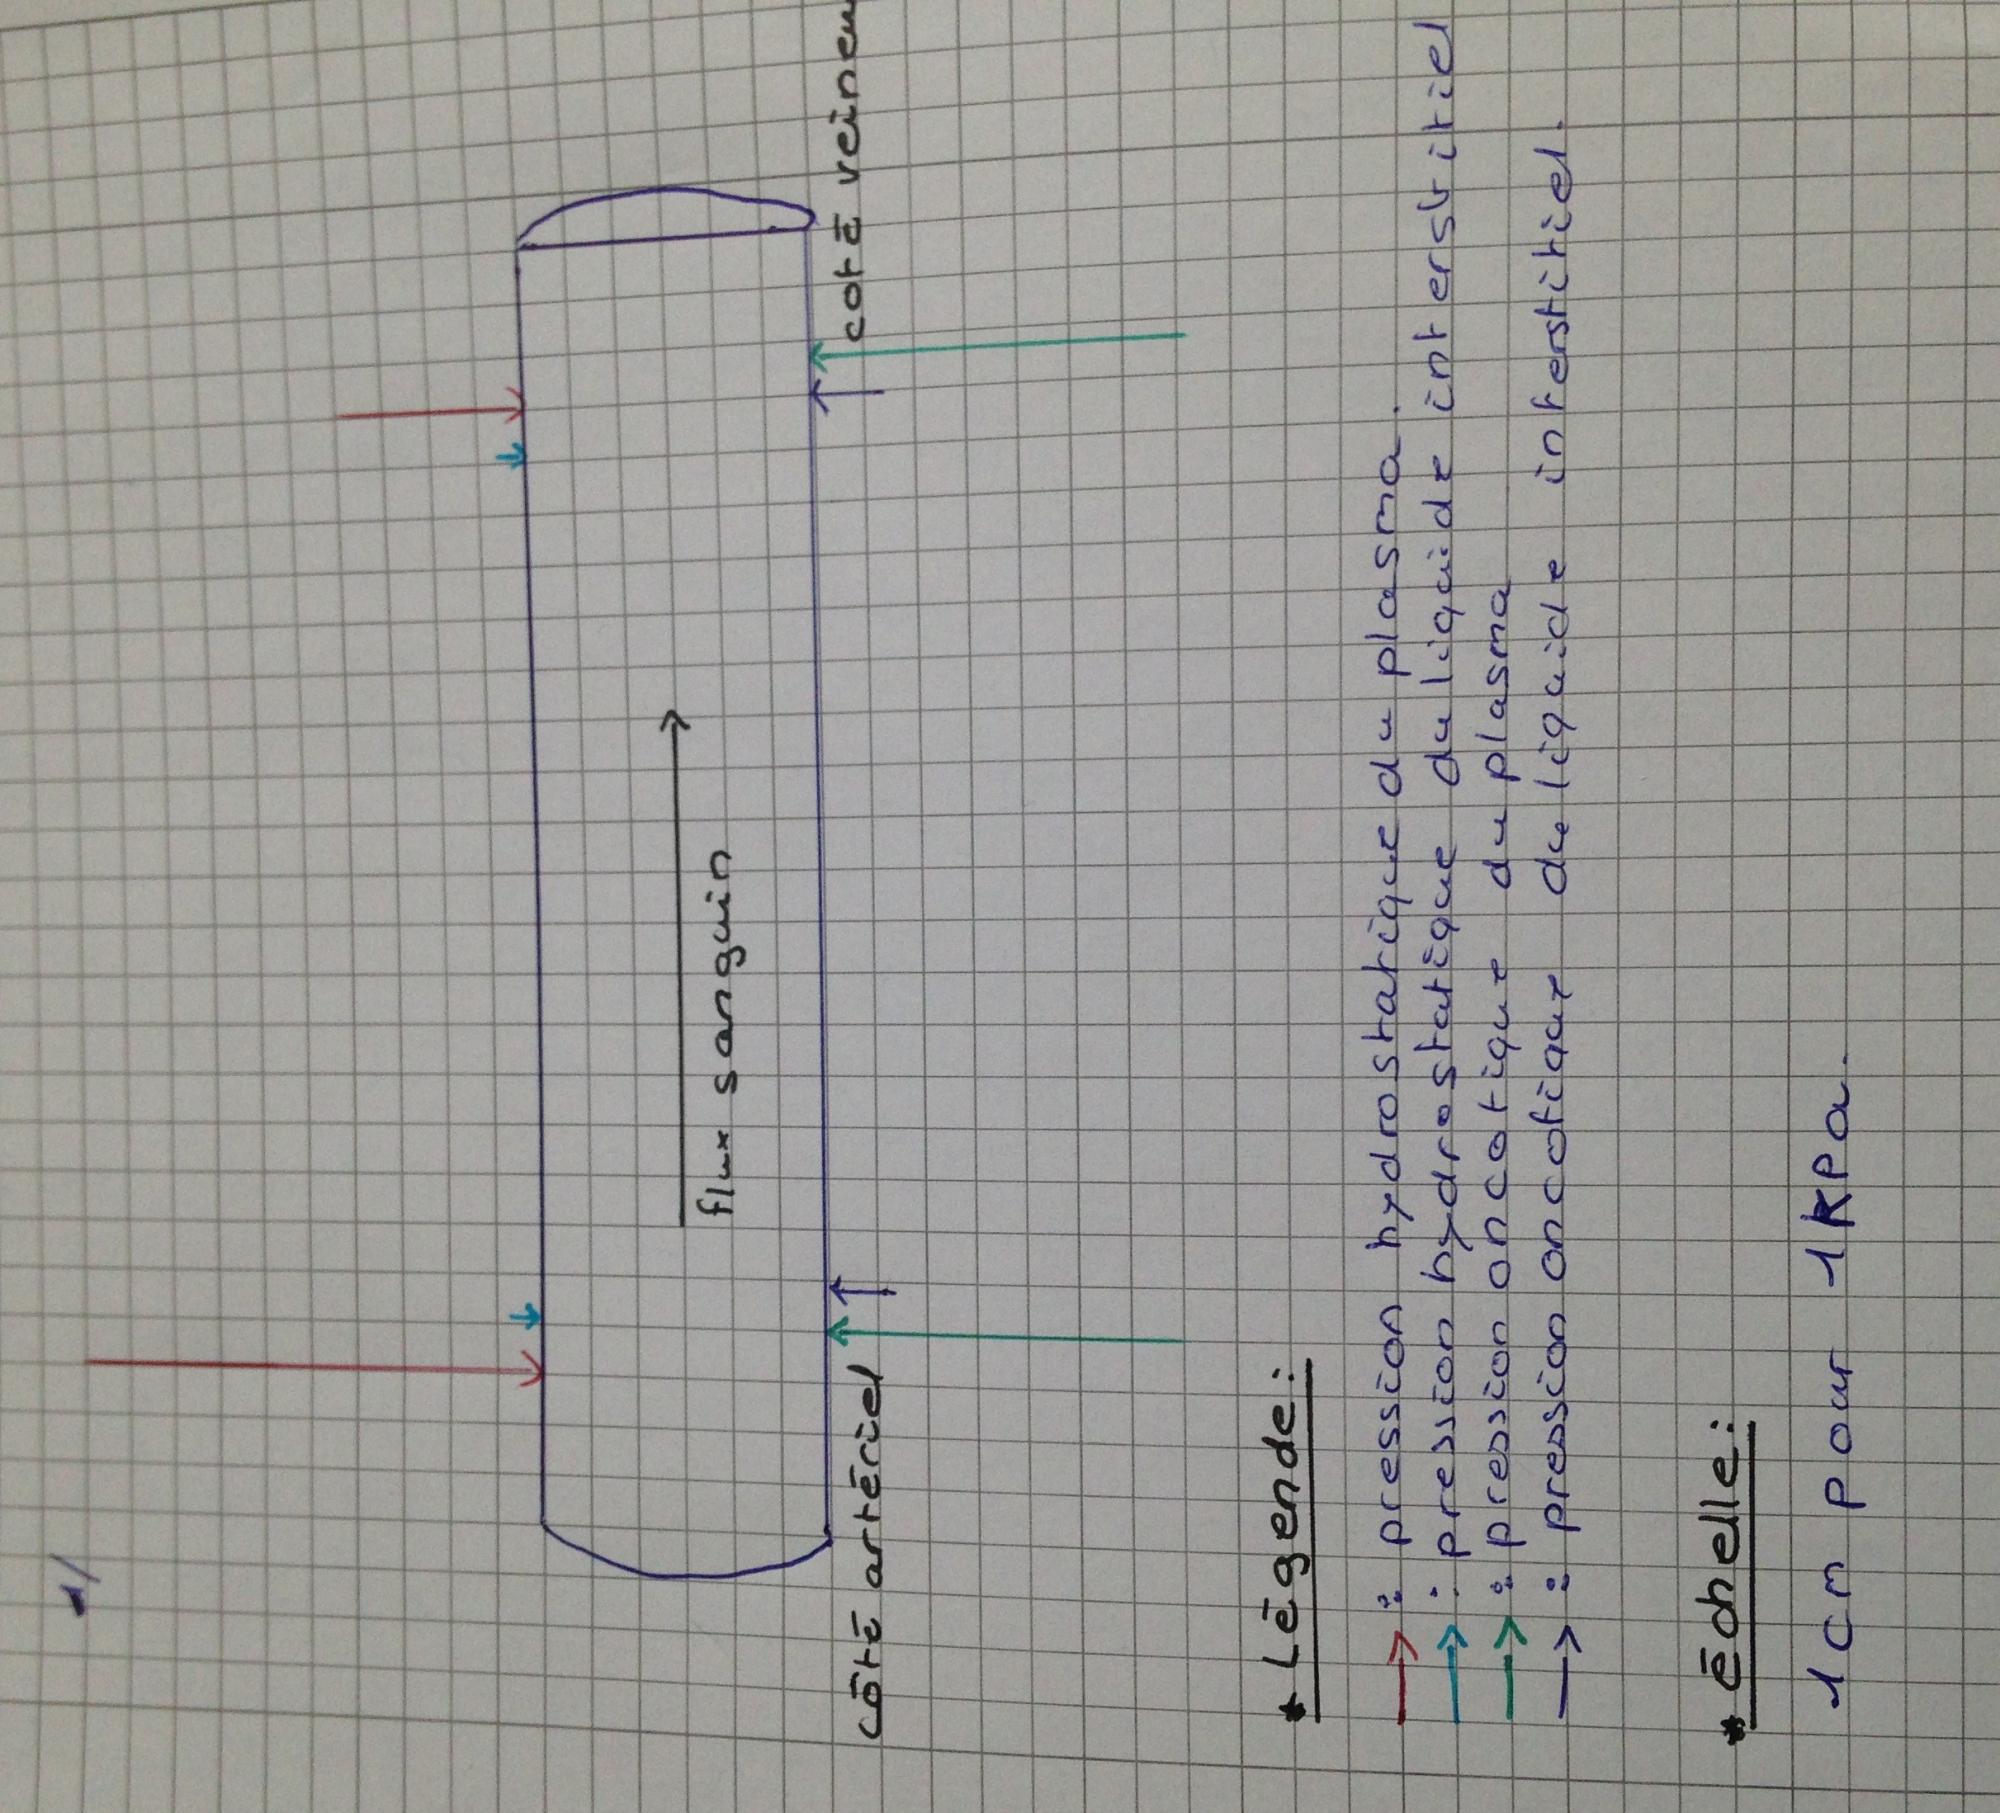 1/
flux sanguin
côté artériel
coté veineu
* Légende:
: pression hydrostatique du plasma.
: pression hydrostatique du liquide interstitiel
: pression oncotique du plasma
: pression oncotique du liquide interstitiel.
* échelle:
1cm pour 1kPa.